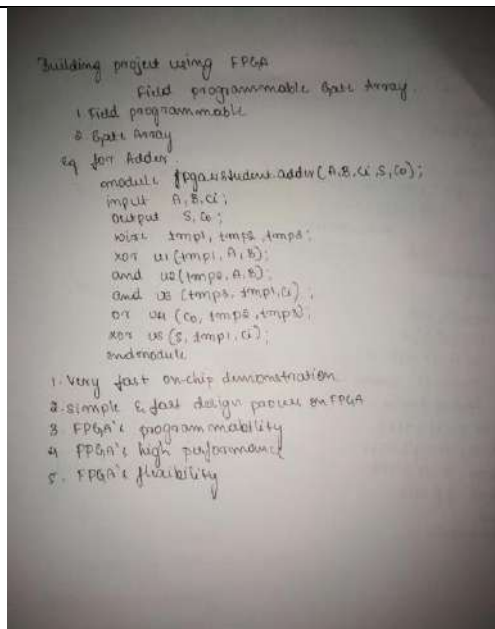 Building project using FPGA
Field programmable Gate Array.
1 Field programmable
2 Gate Array
Eg for Adder.
module fpga4student.adder(A,B,Ci,S,Co);
input A,B,Ci;
output S,Co;
wire tmp1, tmp2, tmp3;
xor u1(tmp1, A,B);
and u2(tmp2,A,B);
and u3 (tmp3, tmp1,Ci);
or u4 (Co, tmp2,tmp3);
xor u5(S,tmp1,Ci);
endmodule
1. Very fast on-chip demonstration
2. Simple & fast design process on FPGA
3. FPGA's programmability
4 FPGA's high performance
5. FPGA's flexibility